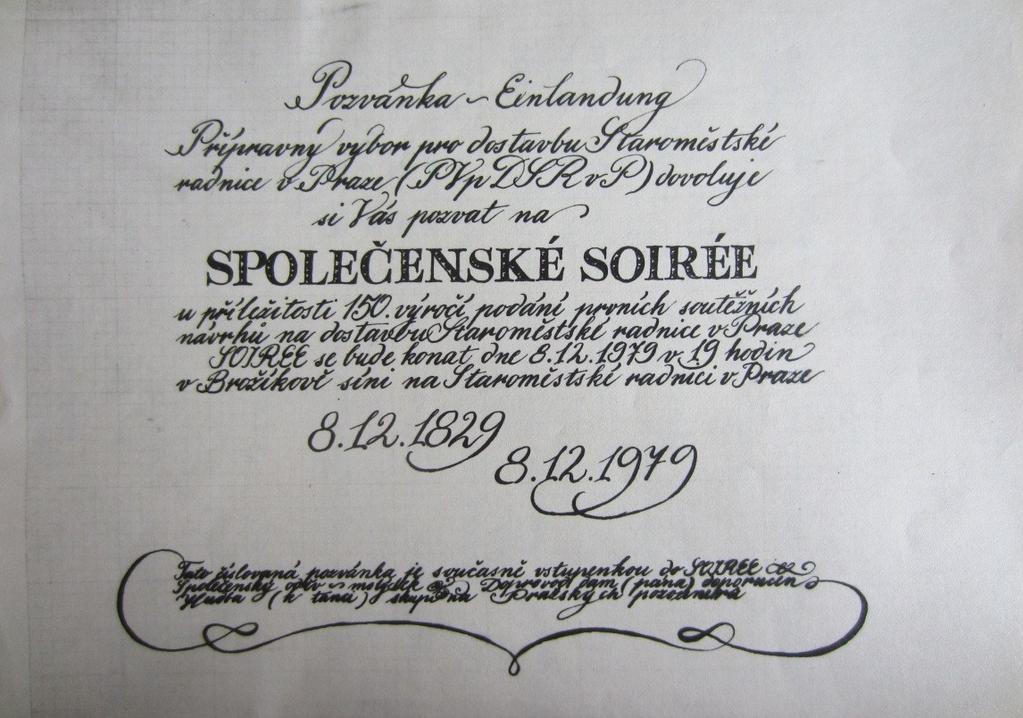 Pozvánka ~ Einlandung
Přípravný výbor pro dostavbu Staroměstské
radnice v Praze (PVpDSRvP) dovoluje
si Vás pozvat na
SPOLEČENSKÉ SOIRÉE
u příležitosti 150. výročí podání prvních soutěžních
návrhů na dostavbu Staroměstské radnice v Praze
SOIREE se bude konat dne 8.12.1979 v 19 hodin
v Brožíkově síni na Staroměstské radnici v Praze
8.12.1829
8.12.1979
Tato číslovaná pozvánka je současně vstupenkou do SOIREE
Společenský oděv ~ motýlek Doprovod dam (pána) doporučen
Hudba (k tanci) skupina Pražských pozounérů